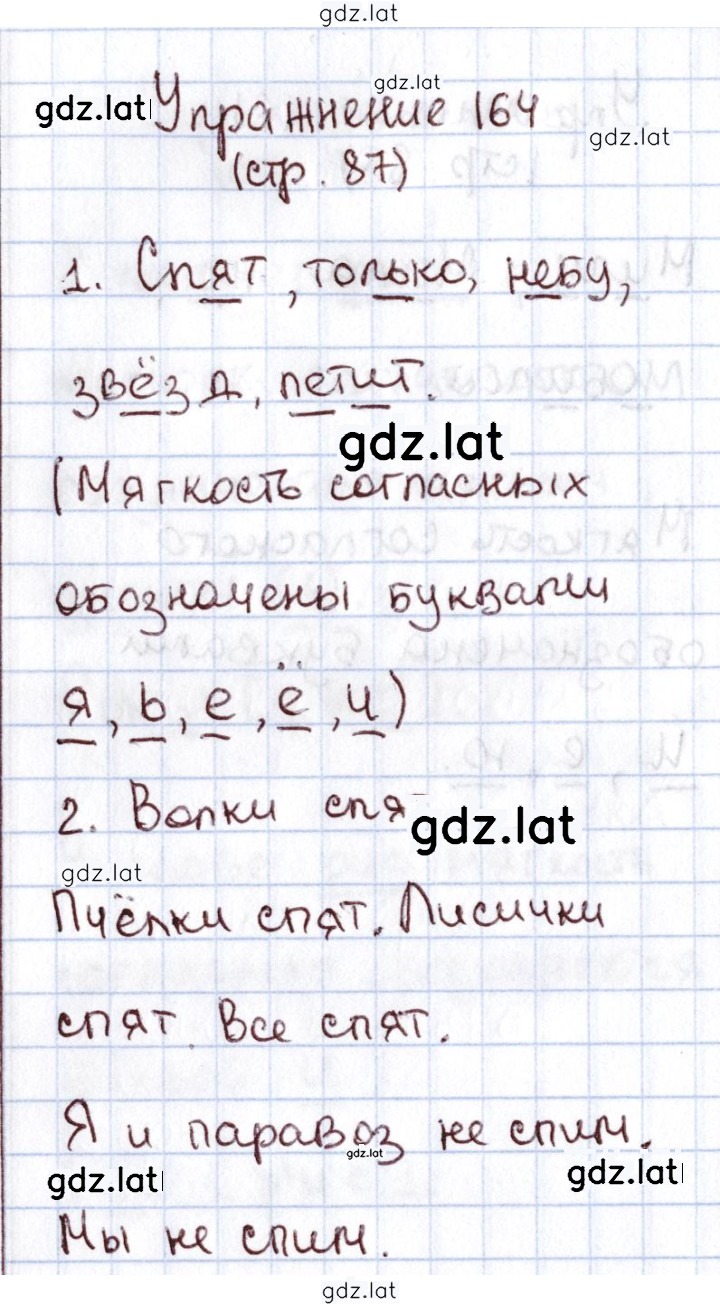 gdz.lat
gdz.lat
gdz.lat
Упражнение 164
gdz.lat
(стр. 87)
1. Спят, только, небу,
звёзд, летит.
gdz.lat
(Мягкость согласных
обозначены буквами
я, ь, е, ё, и)
2. Волки спя
gdz.lat
gdz.lat
Пчёлки спят. Лисички
спят. Все спят.
Я и паравоз не спим.
gdz.lat
gdz.lat
gdz.lat
Мы не спим.
gdz.lat